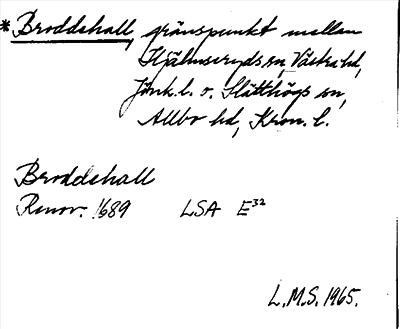 *Broddehall, gränspunkt mellan
Hjälmseryds sn, Västra hd,
Jönk. l. o. Slätthögs sn,
Allbo hd, Kron. l.
Broddehall
Renov. 1689 LSA E³²
L.M.S. 1965.